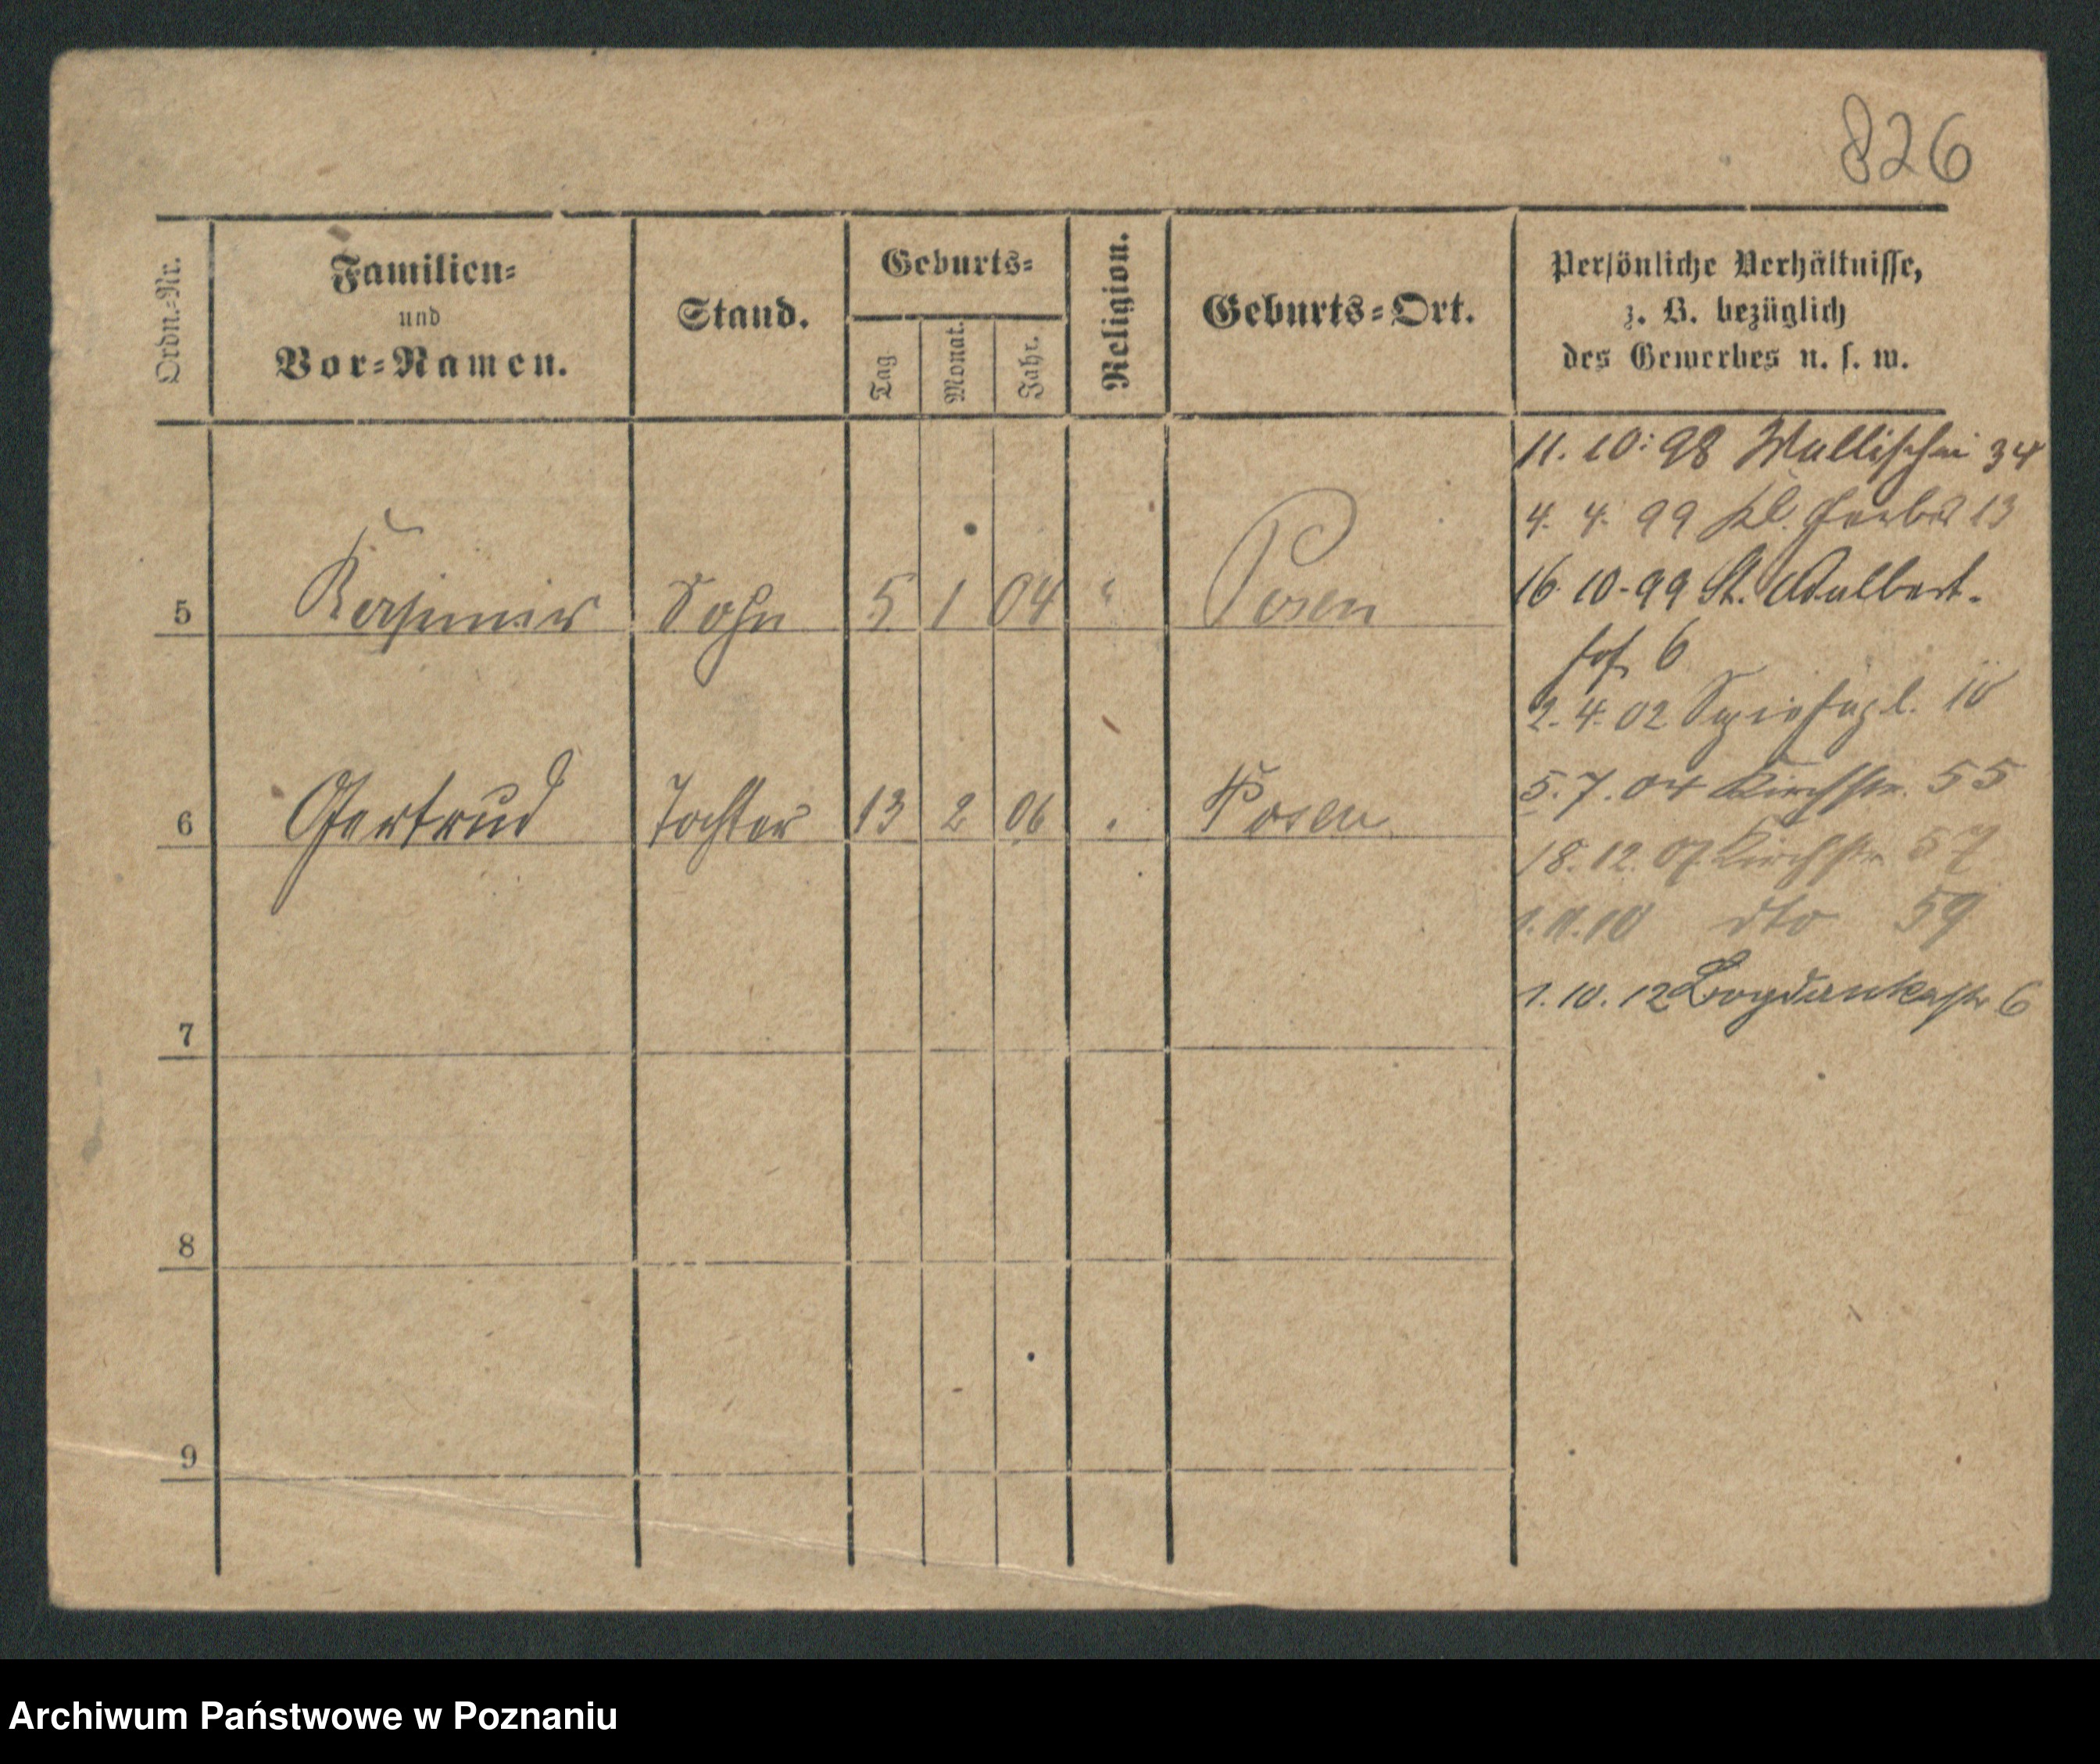 826
Ordn.-Nr.
Familien-
und
Vor-Namen.
Stand.
Geburts-
Tag
Monat.
Jahr.
Religion.
Geburts-Ort.
Persönliche Verhältnisse,
z. B. bezüglich
des Gewerbes u. s. w.
11. 10. 98 Wallischei 34
4. 4. 99 Kl. Gerbst 13
16. 10. 99 St. Adalbert-
hof 6
5 Kasimir Sohn 5 1 04 " Posen
2. 4. 02 10
5. 7. 04 Kirchstr. 55
6 Gertrud Tochter 13 2 06 " Posen
18. 12. 07 Kirchstr 57
dto 59
1. 10. 12 Bogdankastr 6
7
8
9
Archiwum Państwowe w Poznaniu